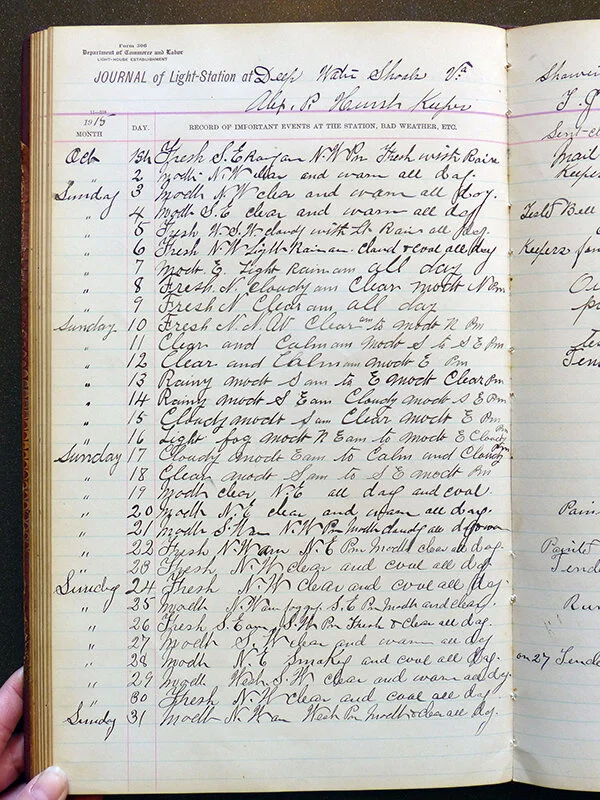 Form 306
Department of Commerce and Labor
LIGHT-HOUSE ESTABLISHMENT
JOURNAL of Light-Station at Deep Water Shoals Va
Alex. P. Keeper
1915
MONTH DAY. RECORD OF IMPORTANT EVENTS AT THE STATION, BAD WEATHER, ETC.
Oct 1st Fresh S.E Rain N.W Pm Fresh with Rain
" 2 modt N.W clear and warm all day.
Sunday 3 modt N.W clear and warm all day.
" 4 modt S.E clear and warm all day
" 5 Fresh W.S.W cloudy with Lt Rain all day.
" 6 Fresh N.W Light Rain am. cloud & cool all day
" 7 modt E. Light Rain am all day
" 8 Fresh. N. Cloudy am Clear modt N Pm
" 9 Fresh N Clear am all day
Sunday 10 Fresh N.N.W Clear am to modt N Pm
" 11 Clear and Calm am modt S to S E Pm
" 12 Clear and Calm am modt E Pm
" 13 Rainy modt S am to E modt Clear Pm
" 14 Rainy modt S E am Cloudy modt S E Pm
" 15 Cloudy modt S am Clear modt E Pm
" 16 Light fog modt N E am to modt E Cloudy Pm
Sunday 17 Cloudy modt E am to Calm and Cloudy Pm
" 18 Clear modt S am to S E modt Pm
" 19 modt clear N.E all day and cool.
" 20 modt N.E clear and warm all day.
" 21 modt S.W am N.W Pm Modt cloudy all day
" 22 Fresh N.W am N.E Pm Modt clear all day.
" 23 Fresh N.W clear and cool all day
Sunday 24 Fresh N.W clear and cool all day.
" 25 modt N.W am foggy. S.E Pm Modt and clear.
" 26 Fresh S.E am S.W Pm Fresh & clear all day.
" 27 modt S.W clear and warm all day
" 28 modt N.E Smokey and cool all day.
" 29 modt West S.W clear and warm all day.
" 30 Fresh N.W clear and cool all day
Sunday 31 modt N.W am West Pm Modt & clear all day.
Mail
Keeper
Bell
Keepers
Tende
Pain
Painted
Tende
on 27 Tende